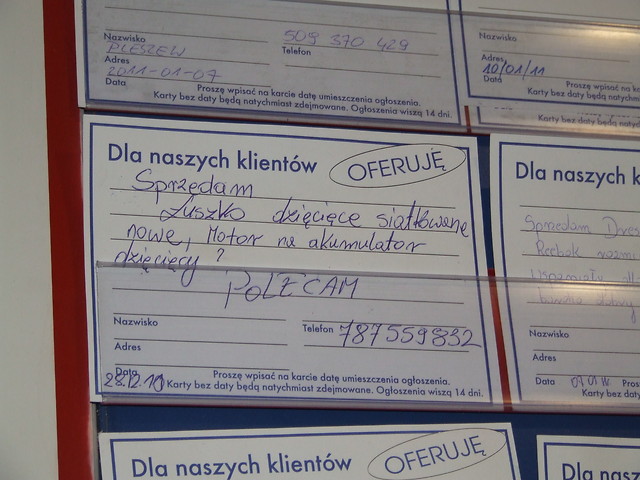 509 370 429
Nazwisko
Telefon
PLESZEW
Adres
2011-01-07
Data
Proszę wpisać na karcie datę umieszczenia ogłoszenia.
Karty bez daty będą natychmiast zdejmowane. Ogłoszenia wiszą 14 dni.
Nazwisko
Adres
10/01/11
Data
Proszę wpisać na
Karty bez daty będą natychm
Karty bez daty będą natychm
Dla naszych klientów OFERUJĘ
Sprzedam
Łuszko dzięcięce siatkowane
nowe, Motor na akumulator
dzięcięcy ?
POLECAM
Nazwisko
Telefon 787559832
Adres
Data
28.12.10
Proszę wpisać na karcie datę umieszczenia ogłoszenia.
Karty bez daty będą natychmiast zdejmowane. Ogłoszenia wiszą 14 dni.
Dla naszych k
Sprzedam Dres
Reebok rozmi
Nazwisko
Adres
Data
Pros
Karty bez daty
Dla naszych klientów OFERUJĘ
Dla nasz